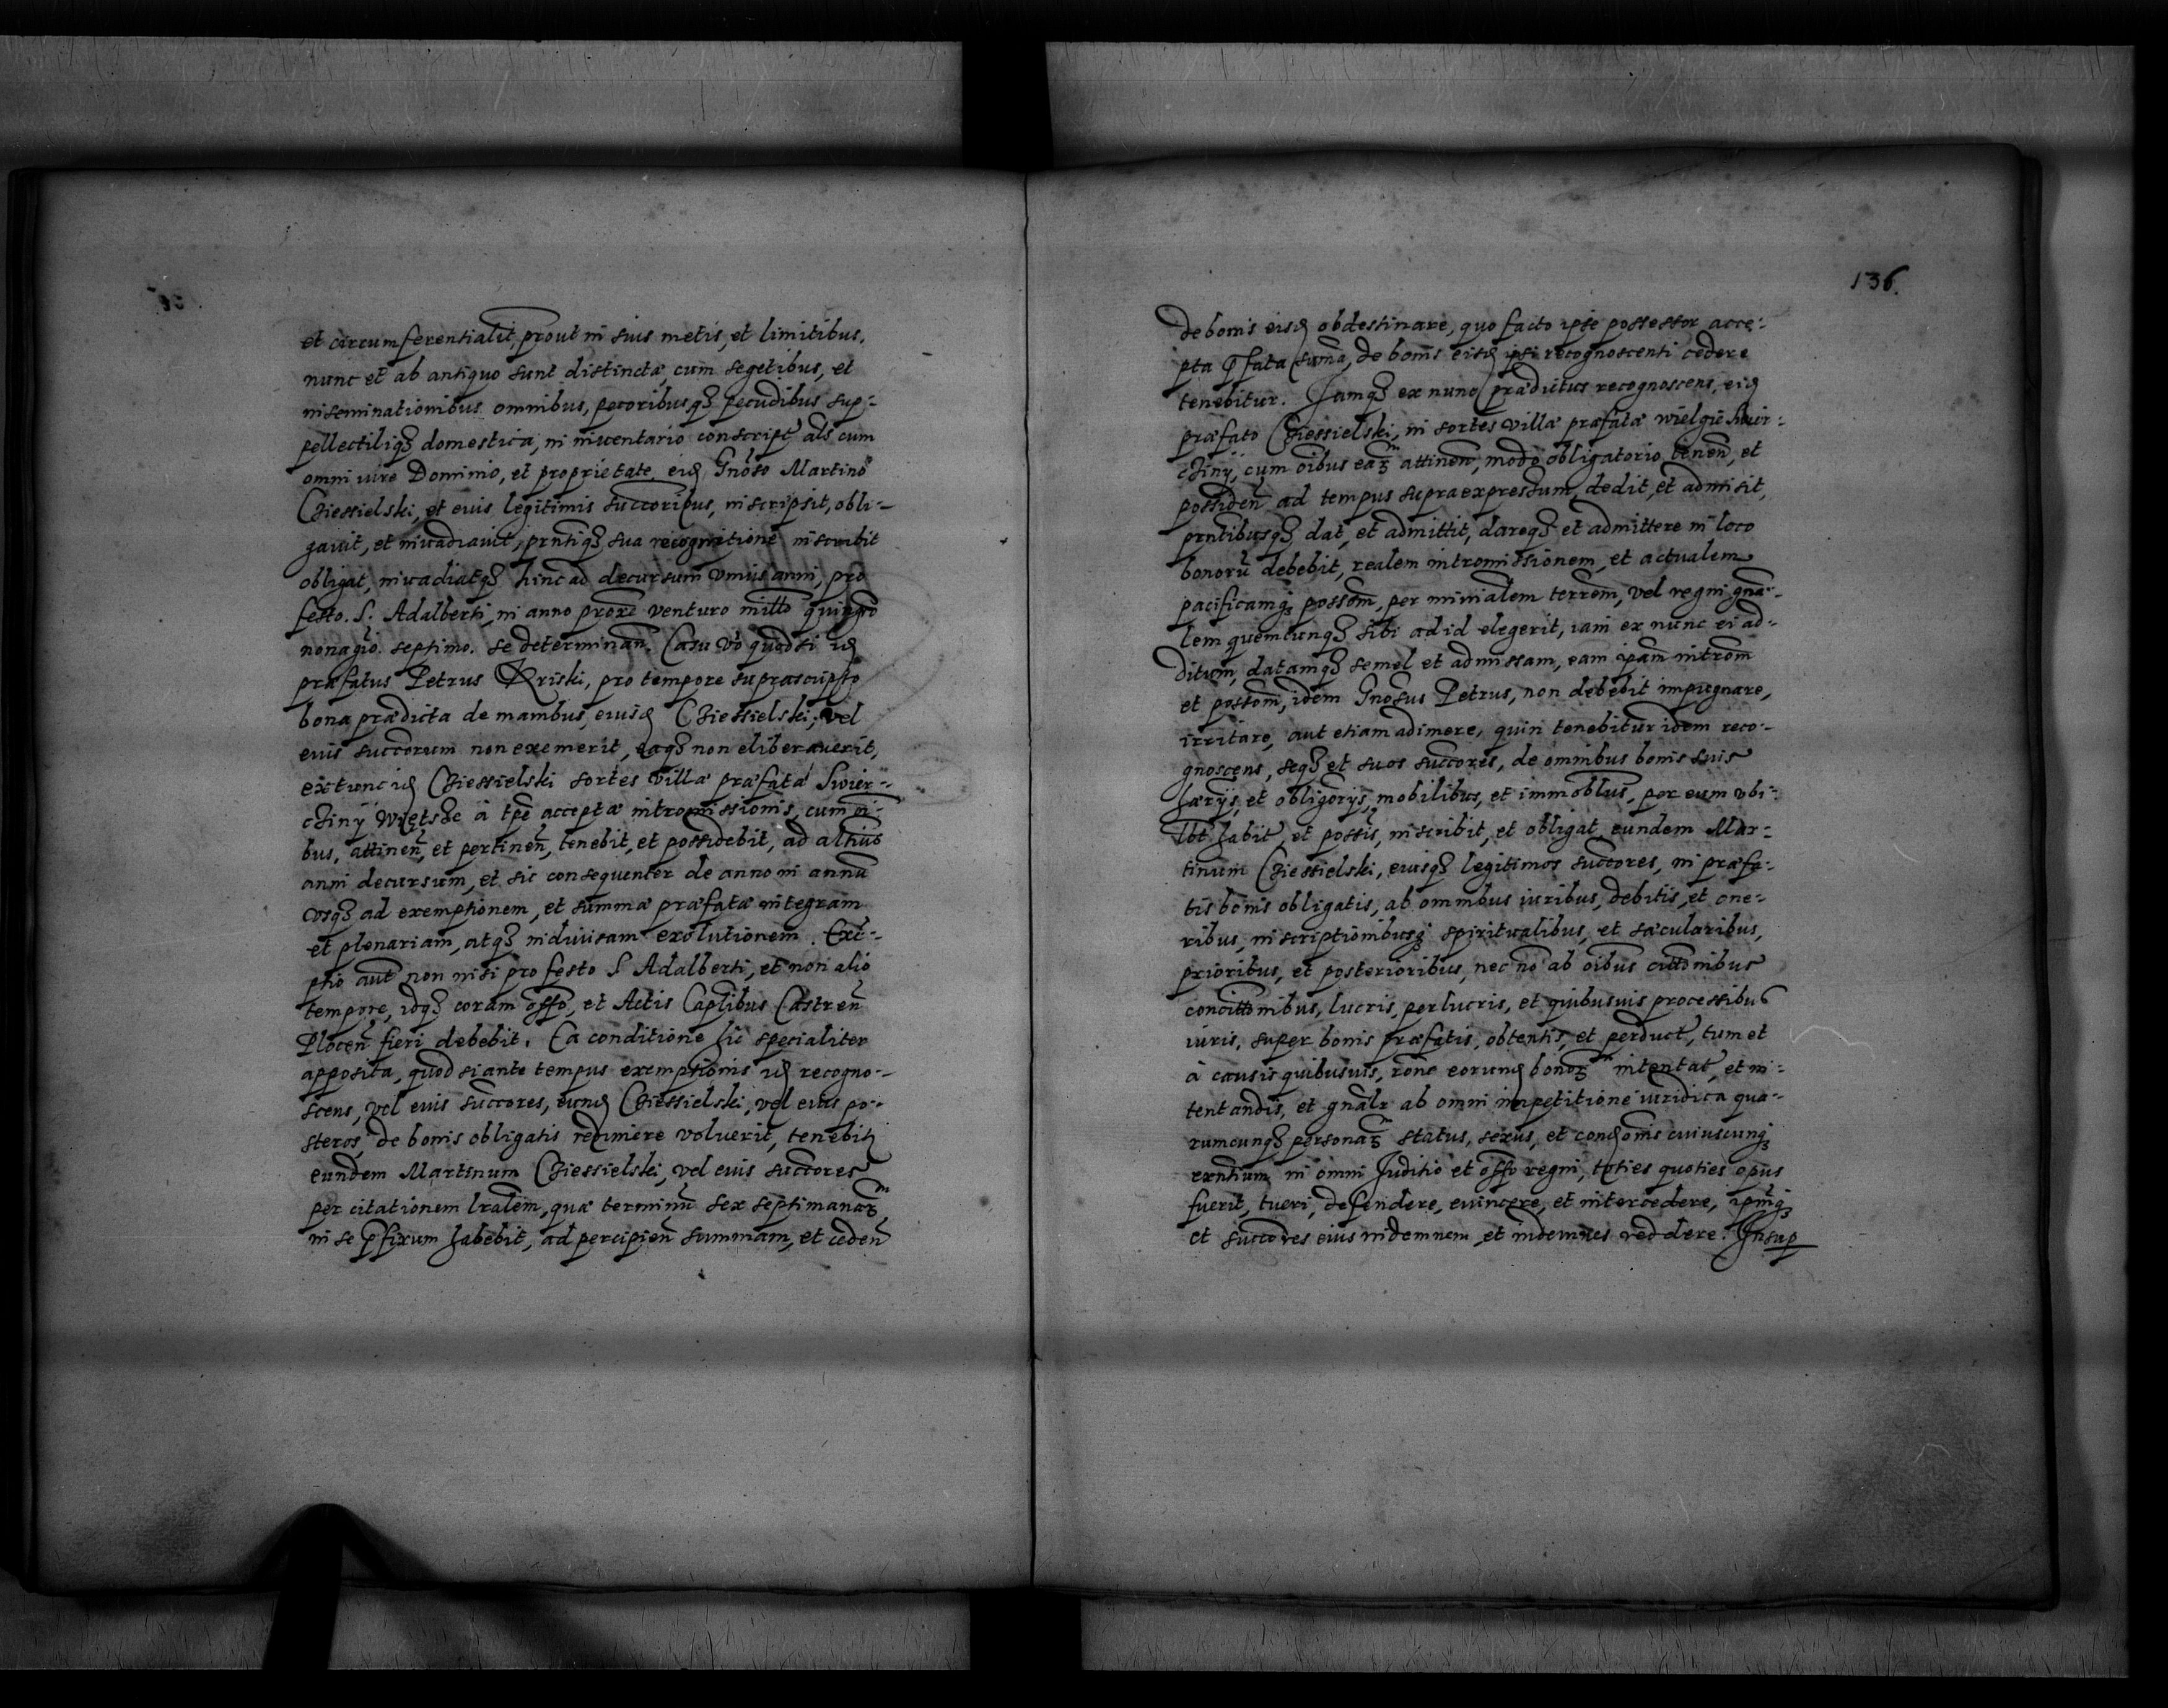 et circumferentialit, prout in suis metis, et limitibus,
nunc et ab antiquo sunt distinctæ, cum segetibus, et
inseminationibus omnibus, pecoribusqȝ pecudibus sup-
pellectiliqȝ domestica, in inventario conscript als cum
omni iure Dominio, et proprietate, eid Gnoso Martino
Chiessielski, et euis legitimis succoribus, inscripsit, obli-
gauit, et inuadiauit, prntiqȝ sua recognitione inscribit
obligat, inuadiatqȝ hinc ad decursum vnius anni, pro
festo. S. Adalberti, in anno prore venturo millo quingmo
nonagio. septimo. se determinan. Casu vo quod si id
præfatus Petrus Kriski, pro tempore suprascripto
bona prædicta de manibus, eiusd Chiessielski, vel
euis succorum non exemerit, eaqȝ non eliberauerit,
extunc id Chiessielski sortes villæ præfatæ Swier-
chiny Wietshe à tpe acceptæ intromissionis, cum oi-
bus, attinen, et pertinen, tenebit, et possidebit, ad altius
anni decursum, et sic consequenter de anno in annu
vsqȝ ad exemptionem, et summæ præfatæ integram
et plenariam, atqȝ indiuisam exolutionem. Exe-
ptio aut non nisi pro festo S Adalberti, et non alio
tempore, idqȝ coram offo, et Actis Caplibus Castren
Plocen fieri debebit. Ea conditione hic specialiter
apposita, quod si ante tempus exemptionis id recogno-
scens, vel euis succores, eund Chiessielski, vel euis po-
steros, de bonis obligatis redimere voluerit, tenebit
eundem Martinum Chiessielski, vel euis succores
per citationem lralem, quæ terminu sex septimanaꝝ
in se pfixum habebit, ad percipien summam, et ceden
136.
de bonis eisd obdestinare, quo facto ipse possessor acce-
pta pfata suma, de bonis eisd ipsi recognoscenti cedere
tenebitur. Iamqȝ ex nunc prædictus recognoscens, eid
præfato Chiessielski, in sortes villæ præfatæ wielgie swier-
chiny, cum oibus eaꝝ attinen, modo obligatorio tenen, et
possiden ad tempus supra expressum, dedit, et admisit,
prntibusqȝ dat, et admittit, dareqȝ et admittere in loco
bonoru debebit, realem intromissionem, et actualem
pacificamqȝ possom, per minialem terrem, vel regni gna-
lem quemcunqȝ sibi ad id elegerit, iam ex nunc ei ad-
ditum, datamqȝ semel et admissam, eam ipam introm
et possom, idem Gnosus Petrus, non debebit impugnare,
irritare, aut etiam adimere, quin tenebitur idem reco-
gnoscens, seqȝ et suos succores, de omnibus bonis suis
hæriis, et obligoriis, mobilibus, et immoblus, per eum vbi-
lbt habit, et possis, inscribit, et obligat, eundem Mar-
tinum Chiessielski, euisqȝ legitimos succores, in præfa-
tis bonis obligatis, ab omnibus iuribus, debitis, et one-
ribus, inscriptionibusqȝ spiritualibus, et sæcularibus,
prioribus, et posterioribus, nec no ab oibus cittonibus
concittonibus, lucris, perlucris, et quibusuis processibus
iuris, super bonis præfatis, obtentis, et perduct, tum et
à causis quibusuis, rone eorund bonoꝝ intentat, et in-
tentandis, et gnalr ab omni impetitione iuridica qua-
rumcunqȝ personaꝝ status, sexus, et condonis cuiuscunqȝ
exntium in omni Juditio et offo regni, toties quoties opus
fuerit, tueri, defendere, euincere, et intercedere, ipmqȝ
et succores eius indemnem, et indemnes reddere. Insup